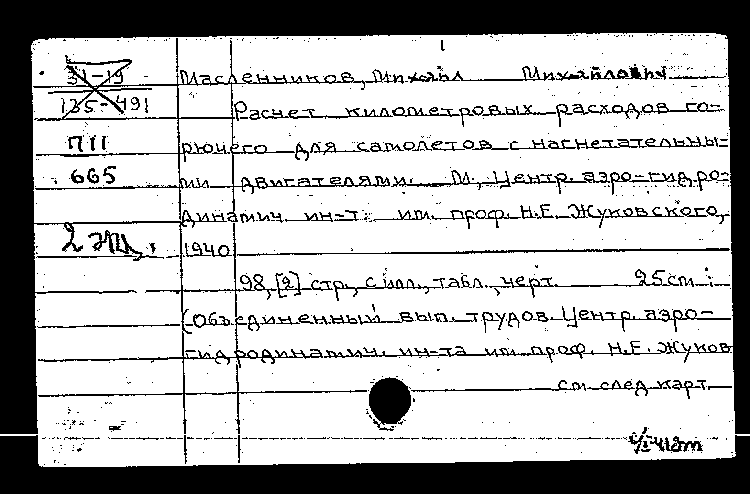 31-19
135-491
П11
665
2 экз.
Масленников, Михаил Михайлович
Расчет километровых расходов го-
рючего для самолетов с нагнетательны-
ми двигателями. М., Центр. аэро-гидро-
динамич. ин-т им. проф. Н.Е. Жуковского,
1940
98, [2] стр., с илл., табл., черт. 25 см
(Объединенный вып. трудов. Центр. аэро-
гидродинамич. ин-та им. проф. Н.Е. Жуков
см. след. карт.